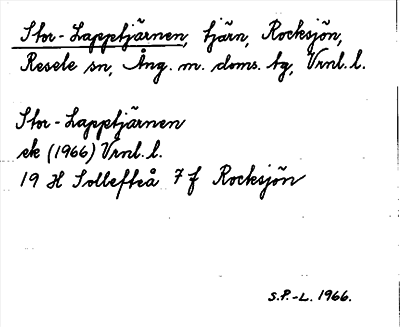 Stor-Lapptjärnen, tjärn, Rocksjön,
Resele sn, Ång. m. doms. tg, Vrnl. l.
Stor-Lapptjärnen
ek (1966) Vrnl. l.
19 H Sollefteå 7 f Rocksjön
S.P.-L. 1966.